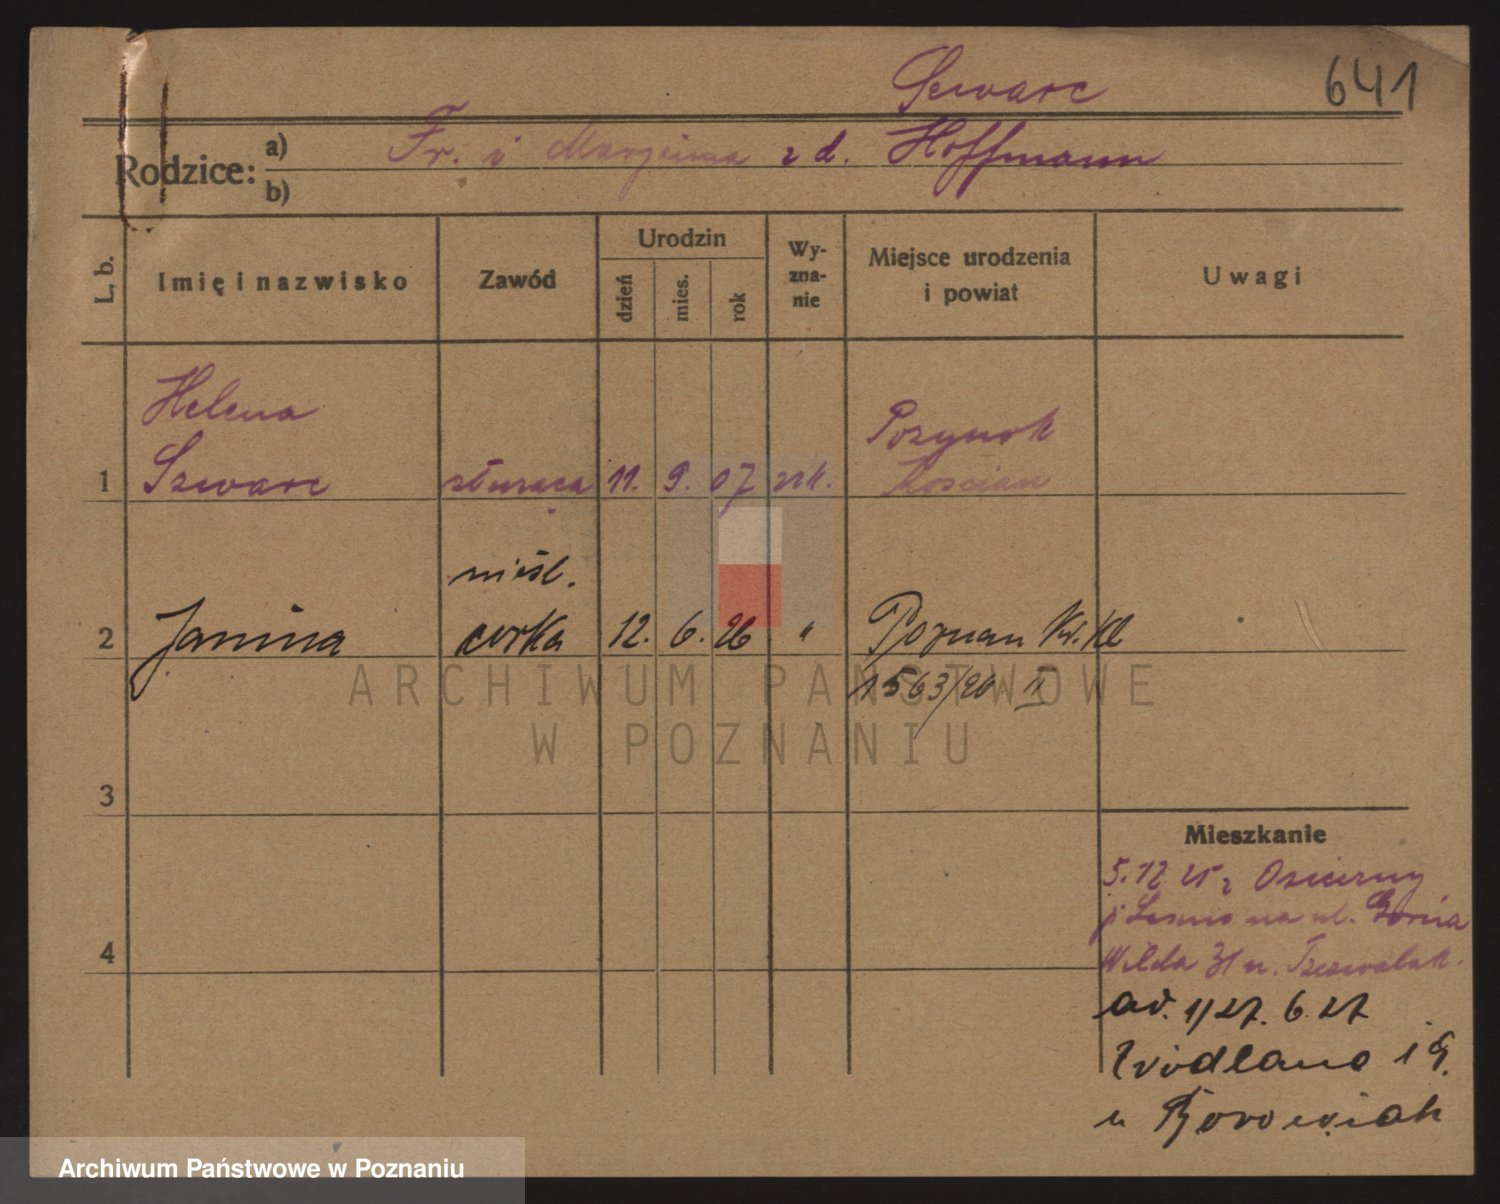 641
Szwarc
Rodzice: a) Fr. i Marjanna z d. Hoffmann
b)
L. b.
Imię i nazwisko
Zawód
Urodzin
dzień
mies.
rok
Wy-
zna-
nie
Miejsce urodzenia
i powiat
Uwagi
Helena
Szwarc
Kościan
1 służąca 11. 9. 07 rzk.
nieśl.
2 Janina córka 12. 6. 26 " Poznań
1563/26 II
3
4
Mieszkanie
5.12.25 z
na ul. Górna
Wilda 31
ad. 1/27. 6. 27
Źródlana 19.
u Borowiak
ARCHIWUM PAŃSTWOWE
W POZNANIU
Archiwum Państwowe w Poznaniu